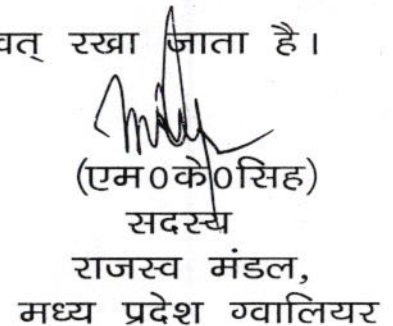 वत् रखा जाता है।
(एम0के0सिह)
सदस्य
राजस्व मंडल,
मध्य प्रदेश ग्वालियर